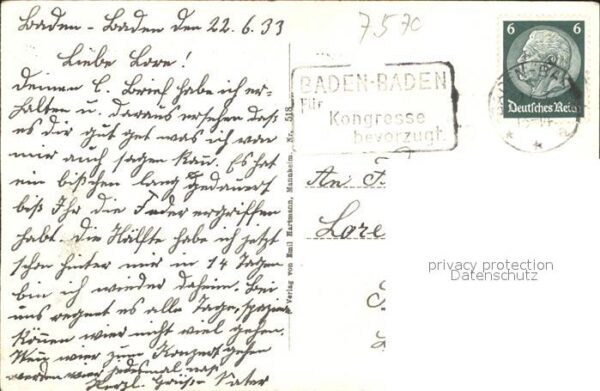 Baden-Baden den 22.6.33
Liebe Lore!
Deinen l. Brief habe ich er-
halten u. daraus ersehen daß
es dir gut geht was ich von
mir auch sagen kann. Es hat
ein bißchen lang gedauert
biß Ihr die Feder ergriffen
habt. Die Hälfte habe ich jetzt
schon hinter mir in 14 Tagen
bin ich wieder daheim. Bei
uns regnet es alle Tage, spazie
können wier nicht viel gehen.
Wenn wier zum Konzert gehen
werden wier jedesmal naß
Herzl. Grüße Vater
Verlag von Emil Hartmann, Mannheim. Nr. 518
7.5 70
BADEN-BADEN
Für
Kongresse
bevorzugt.
6 6
Deutsches Reich
An F
Lore
privacy protection
Datenschutz